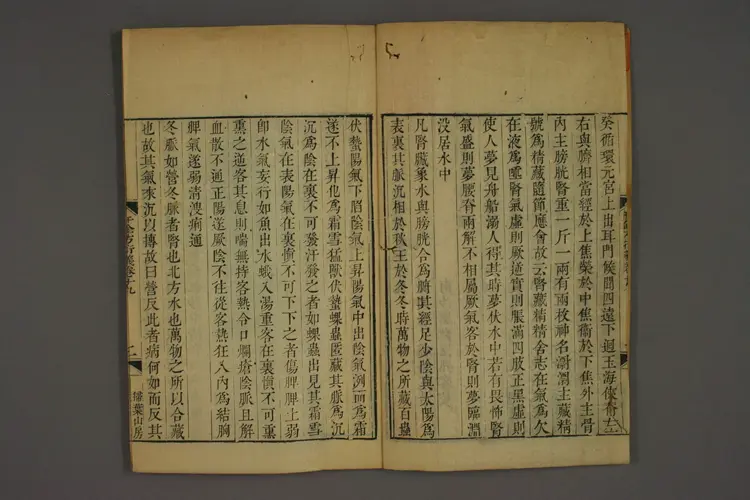 癸循環元宮上出耳門候聞四遠下迴玉海俠脊左
右與臍相當經於上焦榮於中焦衛於下焦外主骨
內主膀胱腎重一斤一兩有兩枚神名𣿬𣿬主藏精
號爲精藏隨節應會故云腎藏精精舍志在氣爲欠
在液爲唾腎氣虛則厥逆實則脹滿四肢正黑虛則
使人夢見舟船溺人得其時夢伏水中若有畏怖腎
氣盛則夢腰脊兩解不相屬厥氣客於腎則夢臨淵
没居水中
凡腎藏象水與膀胱合爲腑其經足少陰與太陽爲
表裏其脈沉相於秋王於冬冬時萬物之所藏百蟲
伏蟄陽氣下陷陰氣上昇陽氣中出陰氣冽爲霜
遂不上昇化爲霜雪猛獸伏蟄蜾蟲匿藏其脈爲沉
沉爲陰在裏不可發汗發之者如蜾蟲出見其霜雪
陰氣在表陽氣在裏愼不可下下之者傷脾脾土弱
即水氣妄行如魚出水蛾入湯重客在裏愼不可熏
熏之逆客其息則喘無持客熱令口爛瘡陰脈且解
血散不通正陽遂厥陰不往從客熱狂入內爲結胸
脾氣遂弱清溲痢通
冬脈如營冬脈者腎也北方水也萬物之所以合藏
也故其氣來沉以摶故曰營反此者病何如而反其
千金方衍義卷十九
掃葉山房